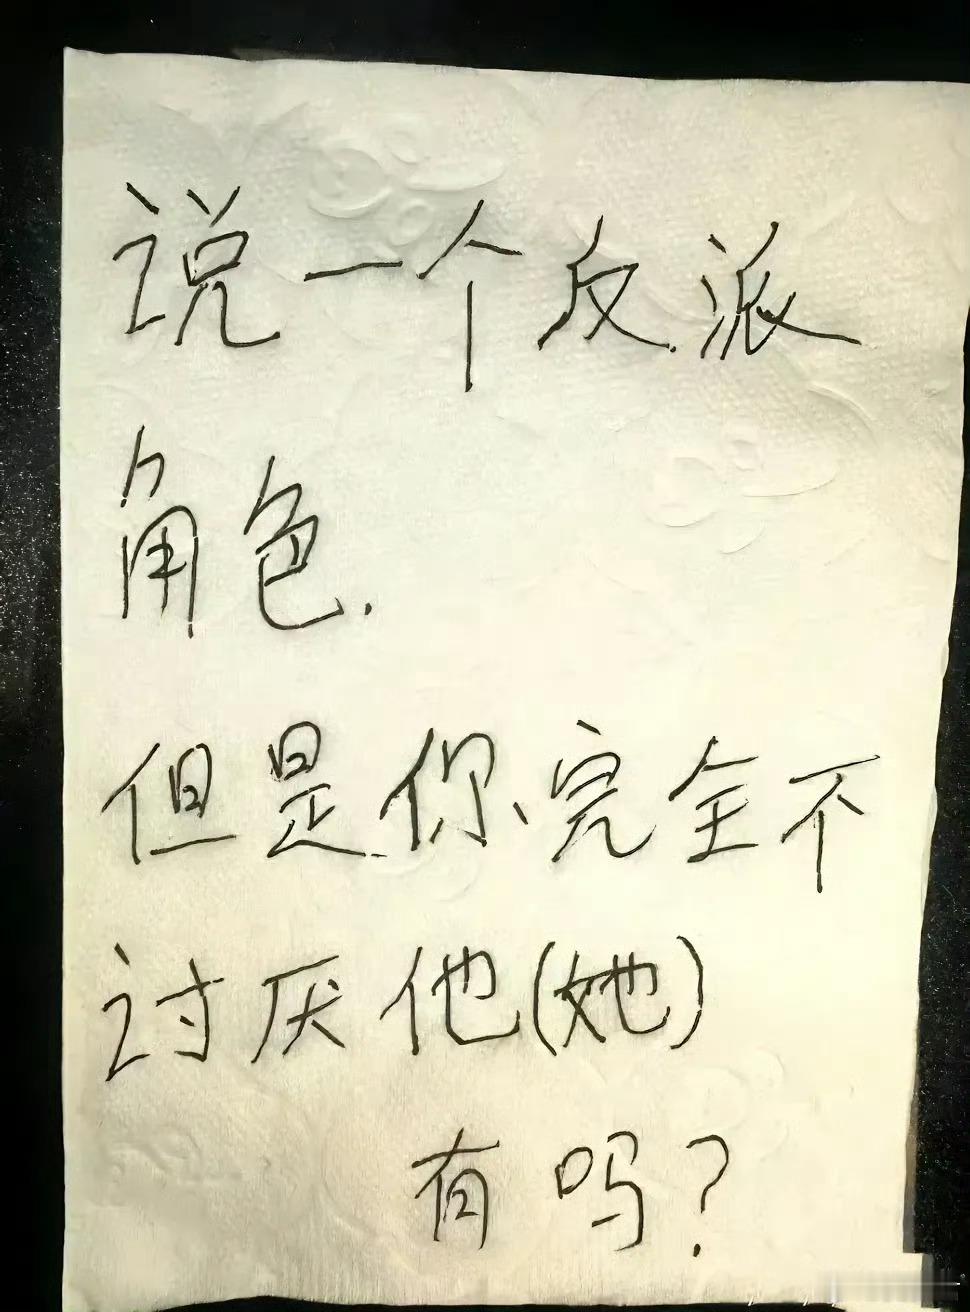 说一个反派
角色.
但是你、完全不
讨厌他(她)
有吗?